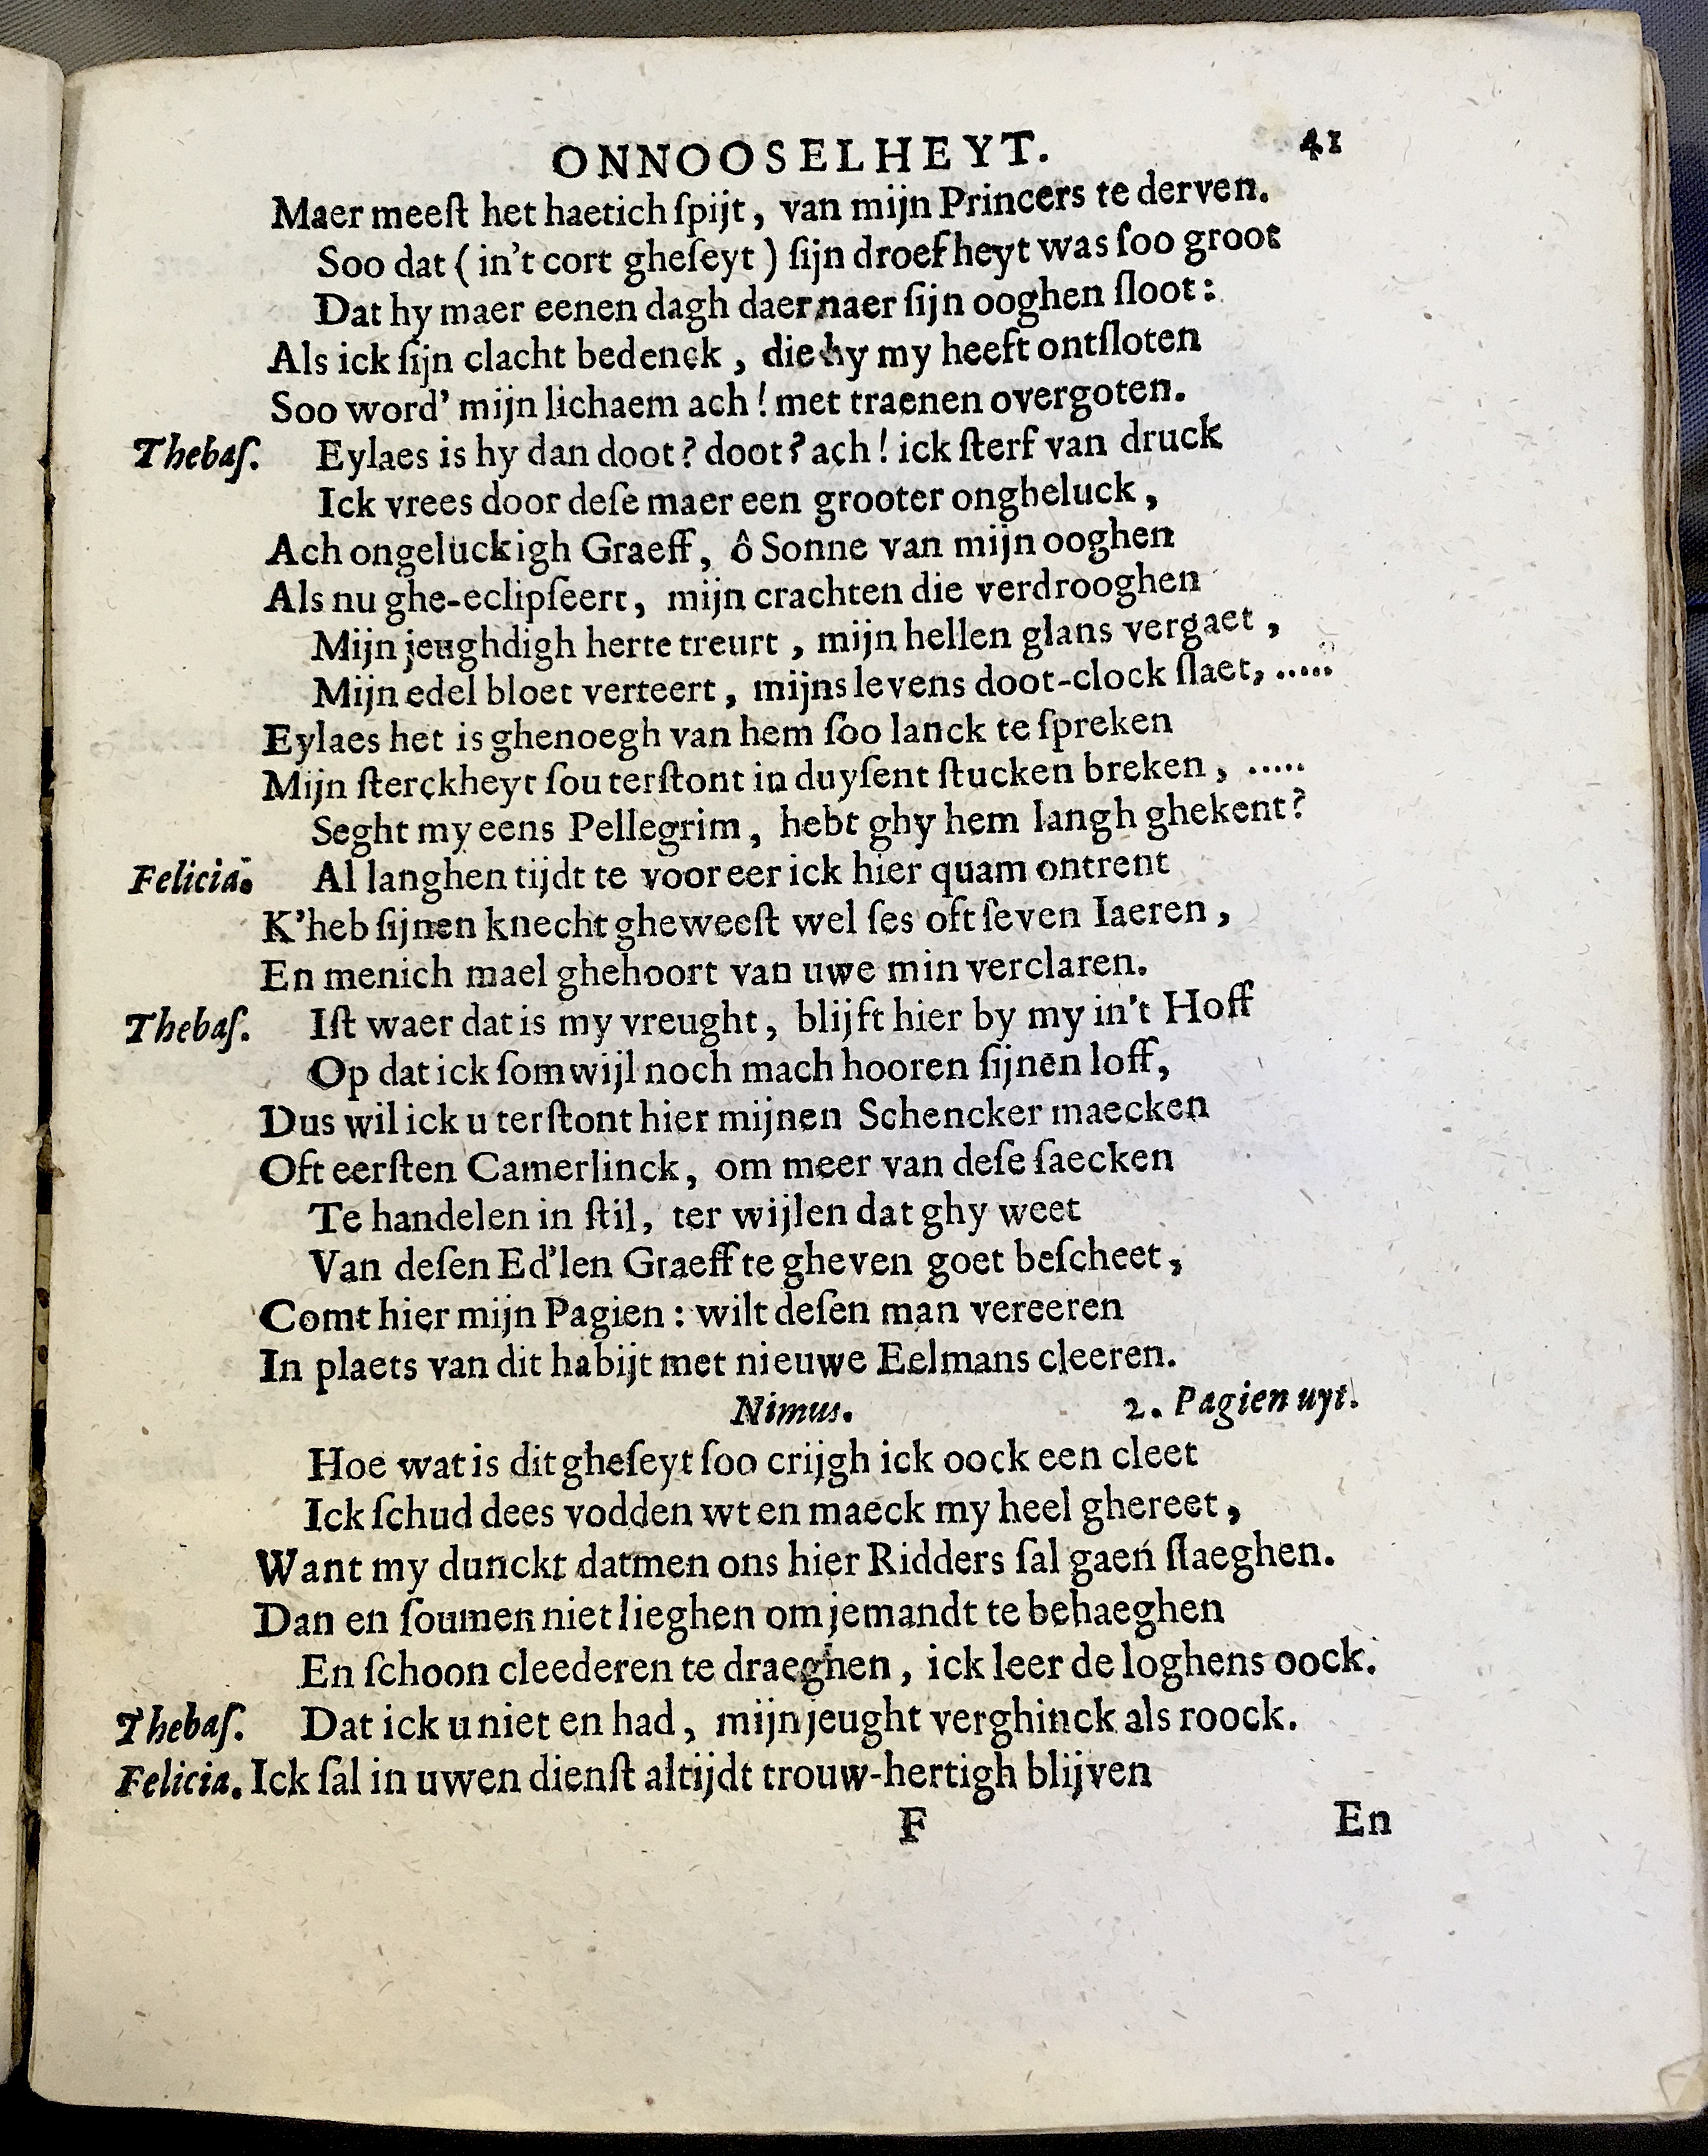 ONNOOSELHEYT. 41
Maer meeſt het haetich ſpijt, van mijn Princers te derven.
Soo dat ( in't cort gheſeyt ) ſijn droefheyt was ſoo groot
Dat hy maer eenen dagh daer naer ſijn ooghen ſloot:
Als ick ſijn clacht bedenck, die hy my heeft ontſloten
Soo word' mijn lichaem ach! met traenen overgoten.
Thebaſ. Eylaes is hy dan doot? doot? ach! ick ſterf van druck
Ick vrees door deſe maer een grooter ongheluck,
Ach ongeluckigh Graeff, ô Sonne van mijn ooghen
Als nu ghe-eclipſeert, mijn crachten die verdrooghen
Mijn jeughdigh herte treurt, mijn hellen glans vergaet,
Mijn edel bloet verteert, mijns levens doot-clock ſlaet, .....
Eylaes het is ghenoegh van hem ſoo lanck te ſpreken
Mijn ſterckheyt ſou terſtont in duyſent ſtucken breken, .....
Seght my eens Pellegrim, hebt ghy hem langh ghekent?
Felicia. Al langhen tijdt te voor eer ick hier quam ontrent
K'heb ſijnen knecht gheweeſt wel ſes oft ſeven Iaeren,
En menich mael ghehoort van uwe min verclaren.
Thebaſ. Iſt waer dat is my vreught, blijft hier by my in't Hoff
Op dat ick ſomwijl noch mach hooren ſijnen loff,
Dus wil ick u terſtont hier mijnen Schencker maecken
Oft eerſten Camerlinck, om meer van deſe ſaecken
Te handelen in ſtil, ter wijlen dat ghy weet
Van deſen Ed'len Graeff te gheven goet beſcheet,
Comt hier mijn Pagien: wilt deſen man vereeren
In plaets van dit habijt met nieuwe Eelmans cleeren.
Nimus. 2. Pagien uyt.
Hoe wat is dit gheſeyt ſoo crijgh ick oock een cleet
Ick ſchud dees vodden wt en maeck my heel ghereet,
Want my dunckt datmen ons hier Ridders ſal gaen ſlaeghen.
Dan en ſoumen niet lieghen om jemandt te behaeghen
En ſchoon cleederen te draeghen, ick leer de loghens oock.
Thebaſ. Dat ick u niet en had, mijn jeught verghinck als roock.
Felicia. Ick ſal in uwen dienſt altijdt trouw-hertigh blijven
F En